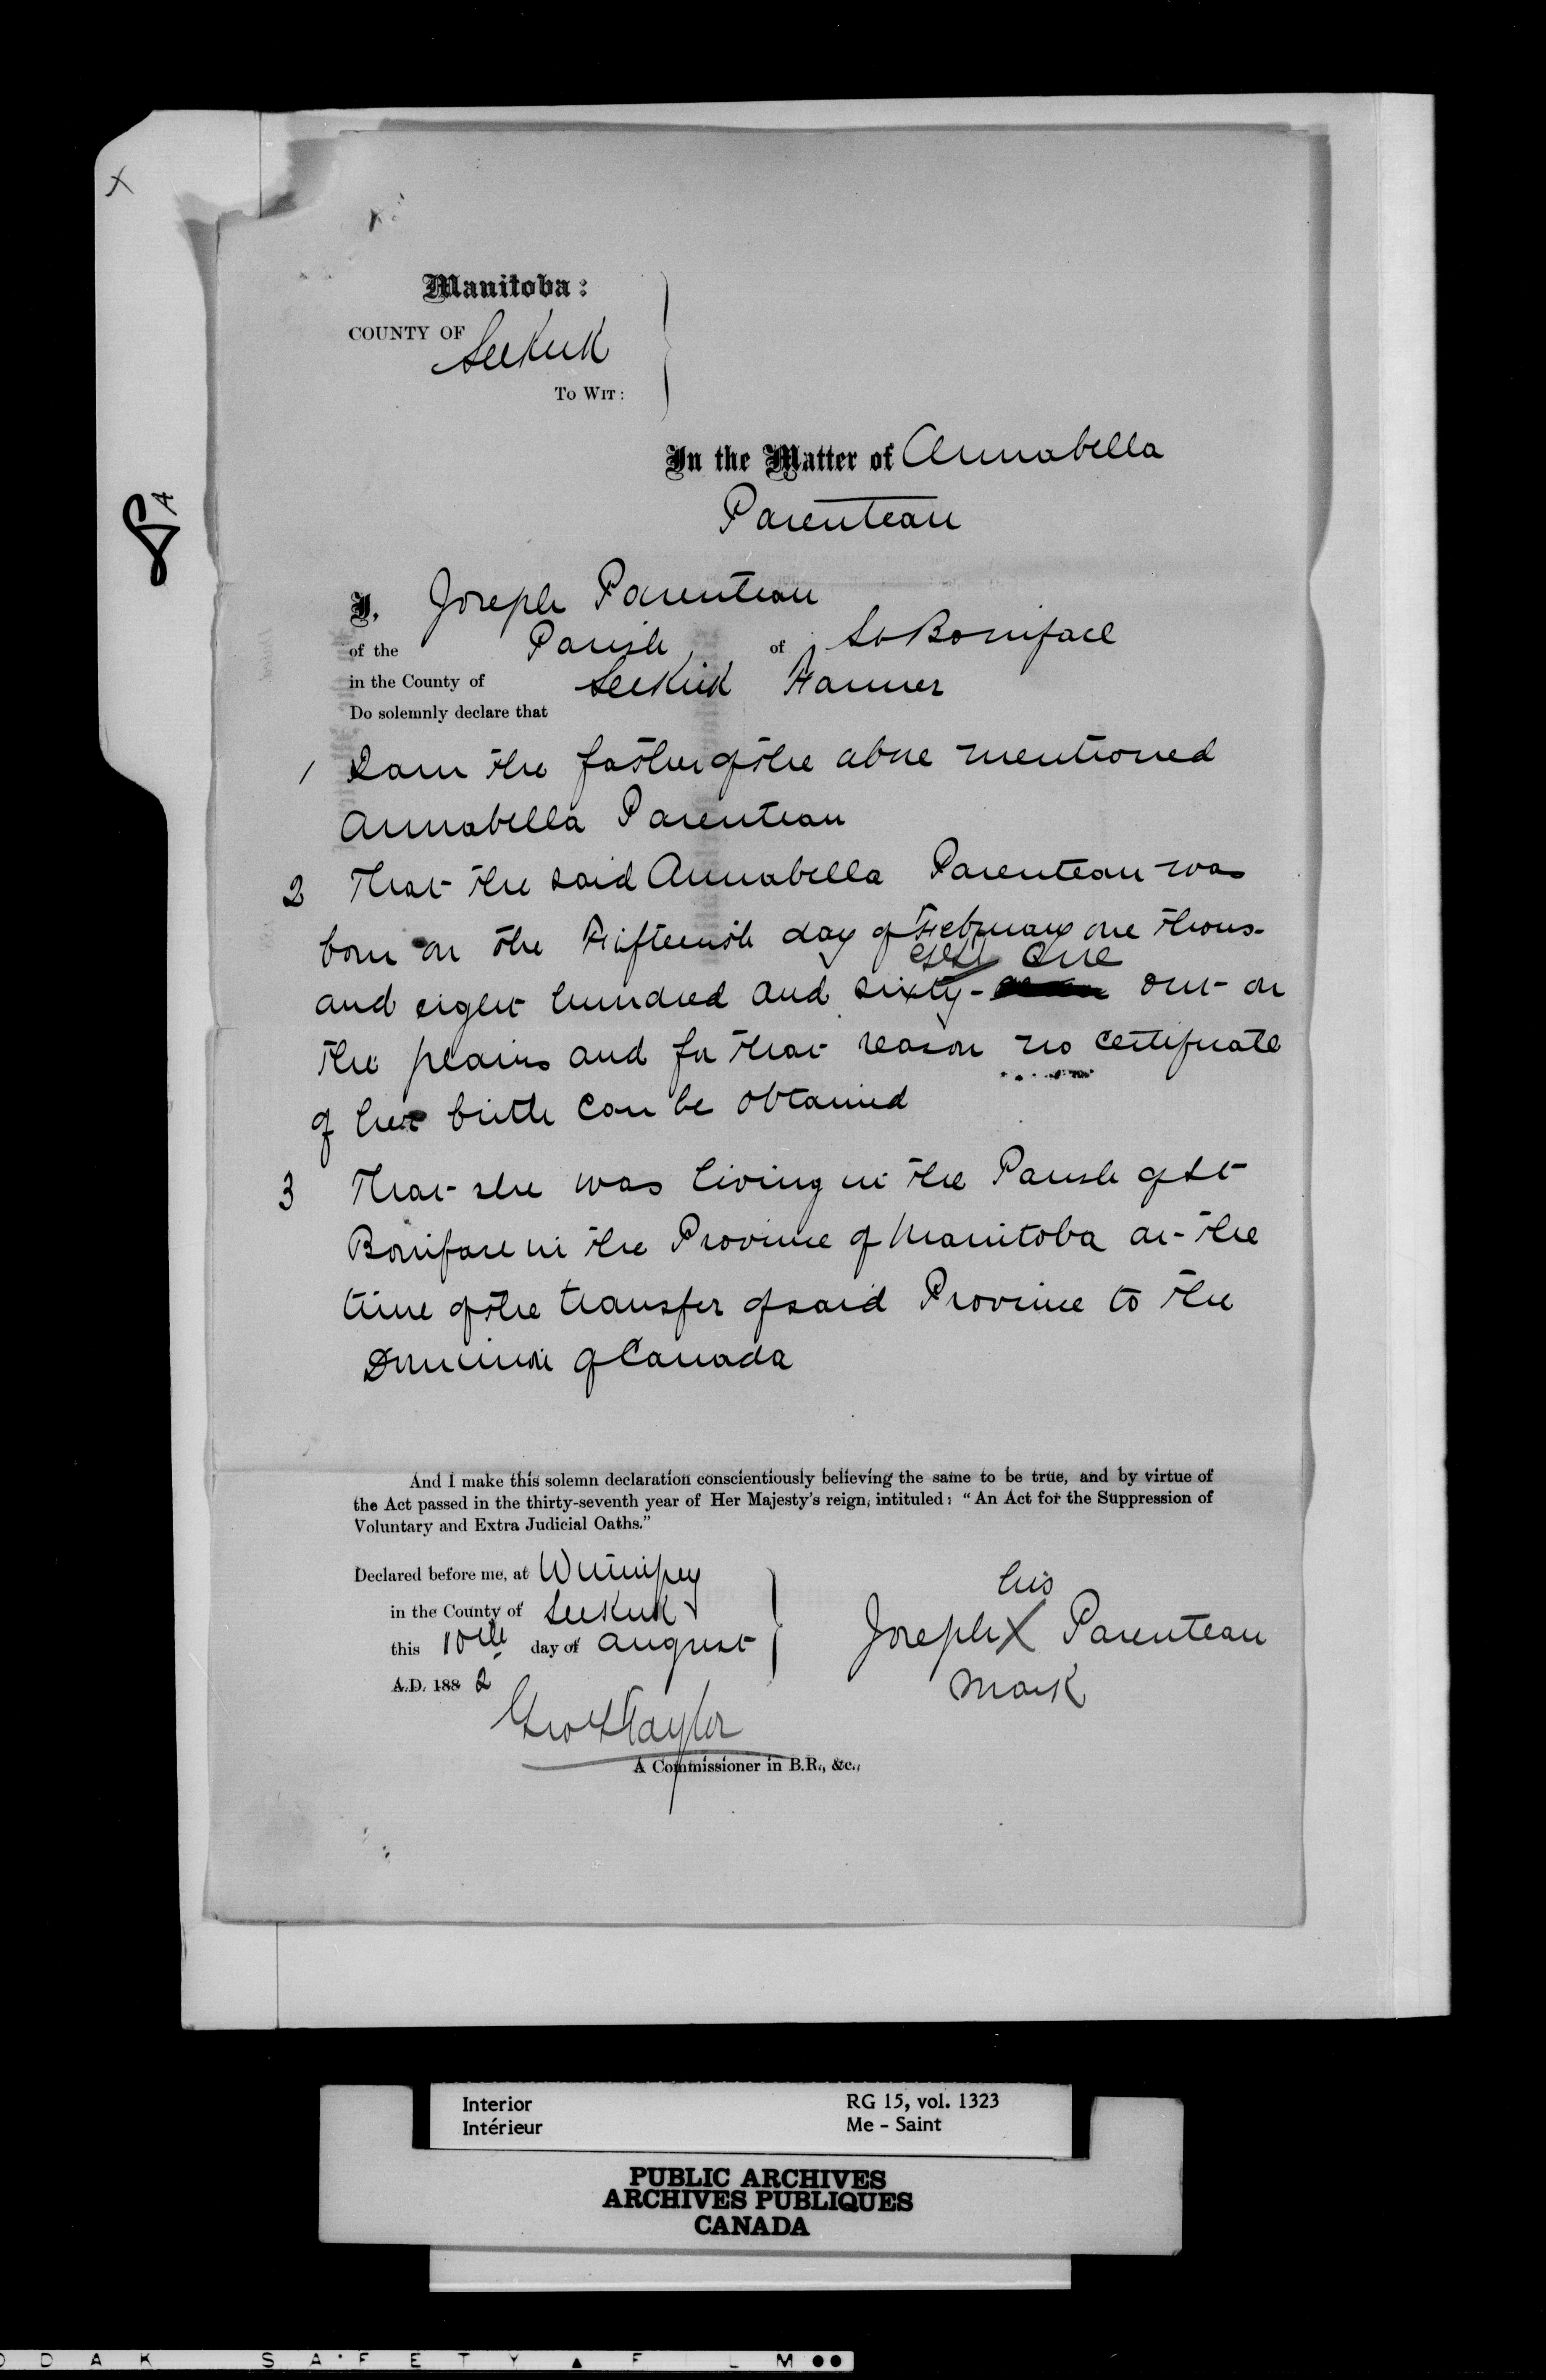 X
Manitoba:
COUNTY OF Selkirk
TO WIT:
In the Matter of Annabella
Parenteau
I, Joseph Parenteau
of the Parish of St Boniface
in the County of Selkirk Farmer
Do solemnly declare that
1 I am the father of the above mentioned
Annabella Parenteau
2 That the said Annabella Parenteau was
born on the Fifteenth day of February one thous-
One
and eight hundred and sixty- out on
the plains and for that reason no certificate
of her birth can be obtained
3 That she was living in the Parish of St
Boniface in the Province of Manitoba at the
time of the transfer of said Province to the
Dominion of Canada
And I make this solemn declaration conscientiously believing the same to be true, and by virtue of
the Act passed in the thirty-seventh year of Her Majesty's reign, intituled: "An Act for the Suppression of
Voluntary and Extra Judicial Oaths."
Declared before me, at Winnipeg
in the County of Selkirk
this 10th day of August
A.D. 1882
his
Joseph X Parenteau
mark
Geo Taylor
A Commissioner in B.R., &c.,
Interior RG 15, vol. 1323
Intérieur Me - Saint
PUBLIC ARCHIVES
ARCHIVES PUBLIQUES
CANADA
D A K S A F E T Y ▲ F L M ●●